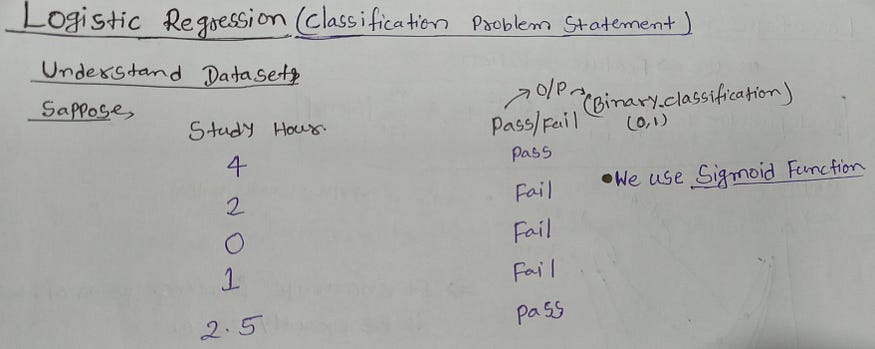 Logistic Regression (Classification Problem Statement)
Understand Datasets
Sappose,
→ O/P → (Binary classification)
Study Hour. Pass/Fail (0,1)
4 Pass
• We use Sigmoid Function
2 Fail
0 Fail
1 Fail
2.5 Pass